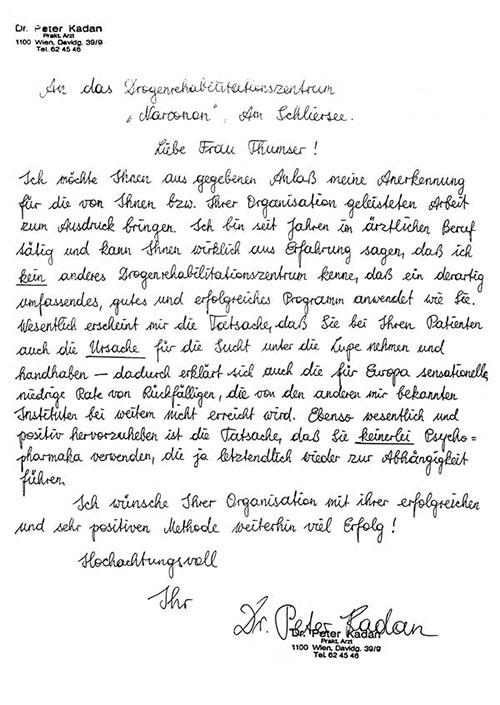 Dr. Peter Kadan
Prakt. Arzt
1100 Wien, Davidg. 39/9
Tel. 62 45 46
An das Drogenrehabilitationszentrum
„Narconon", Am Schliersee.
Liebe Frau Thumser !
Ich möchte Ihnen aus gegebenen Anlaß meine Anerkennung
für die von Ihnen bzw. Ihrer Organisation geleisteten Arbeit
zum Ausdruck bringen. Ich bin seit Jahren im ärztlichen Beruf
tätig und kann Ihnen wirklich aus Erfahrung sagen, daß ich
kein anderes Drogenrehabilitationszentrum kenne, daß ein derartig
umfassendes, gutes und erfolgreiches Programm anwendet wie Sie.
Wesentlich erscheint mir die Tatsache, daß Sie bei Ihren Patienten
auch die Ursache für die Sucht unter die Lupe nehmen und
handhaben – dadurch erklärt sich auch die für Europa sensationelle
niedrige Rate von Rückfälligen, die von den anderen mir bekannten
Instituten bei weitem nicht erreicht wird. Ebenso wesentlich und
positiv hervorzuheben ist die Tatsache, daß Sie keinerlei Psycho=
pharmaka verwenden, die ja letztendlich wieder zur Abhängigkeit
führen.
Ich wünsche Ihrer Organisation mit ihrer erfolgreichen
und sehr positiven Methode weiterhin viel Erfolg !
Hochachtungsvoll
Ihr
Dr. Peter Kadan
Dr. Peter Kadan
Prakt. Arzt
1100 Wien, Davidg. 39/9
Tel. 62 45 46